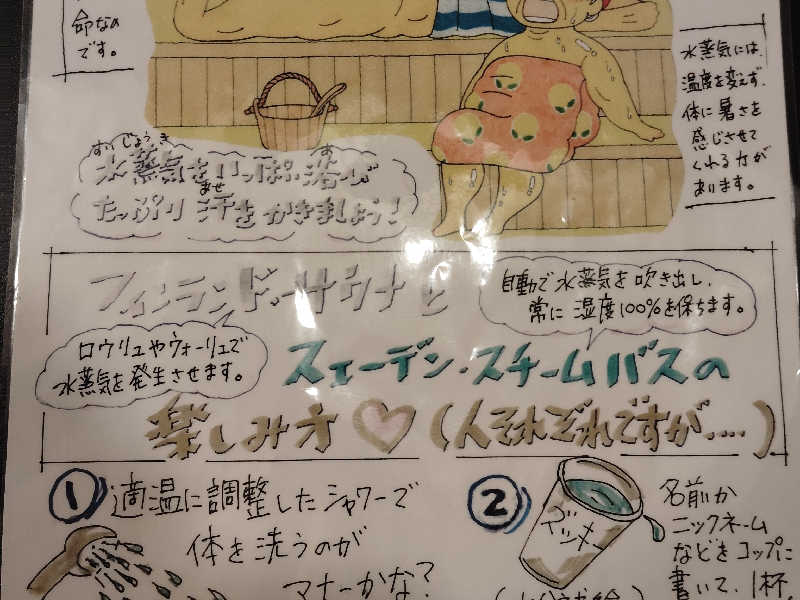 命なの
です。
水蒸気には、
温度を変えず、
体に暑さを
感じさせて
くれる力が
あります。
すいじょうき
水蒸気をいっぱい浴び
たっぷり汗をかきましょう!
フィンランド・サウナと
自動で水蒸気を吹き出し、
常に湿度100%を保ちます。
ロウリュやヴォーリュで
水蒸気を発生させます。
スェーデン・スチームバスの
楽しみ方♡(人それぞれですが....)
① 適温に調整したシャワーで
体を洗うのが
マナーかな?
②
名前か
ニックネーム
などをコップに
書いて、1杯